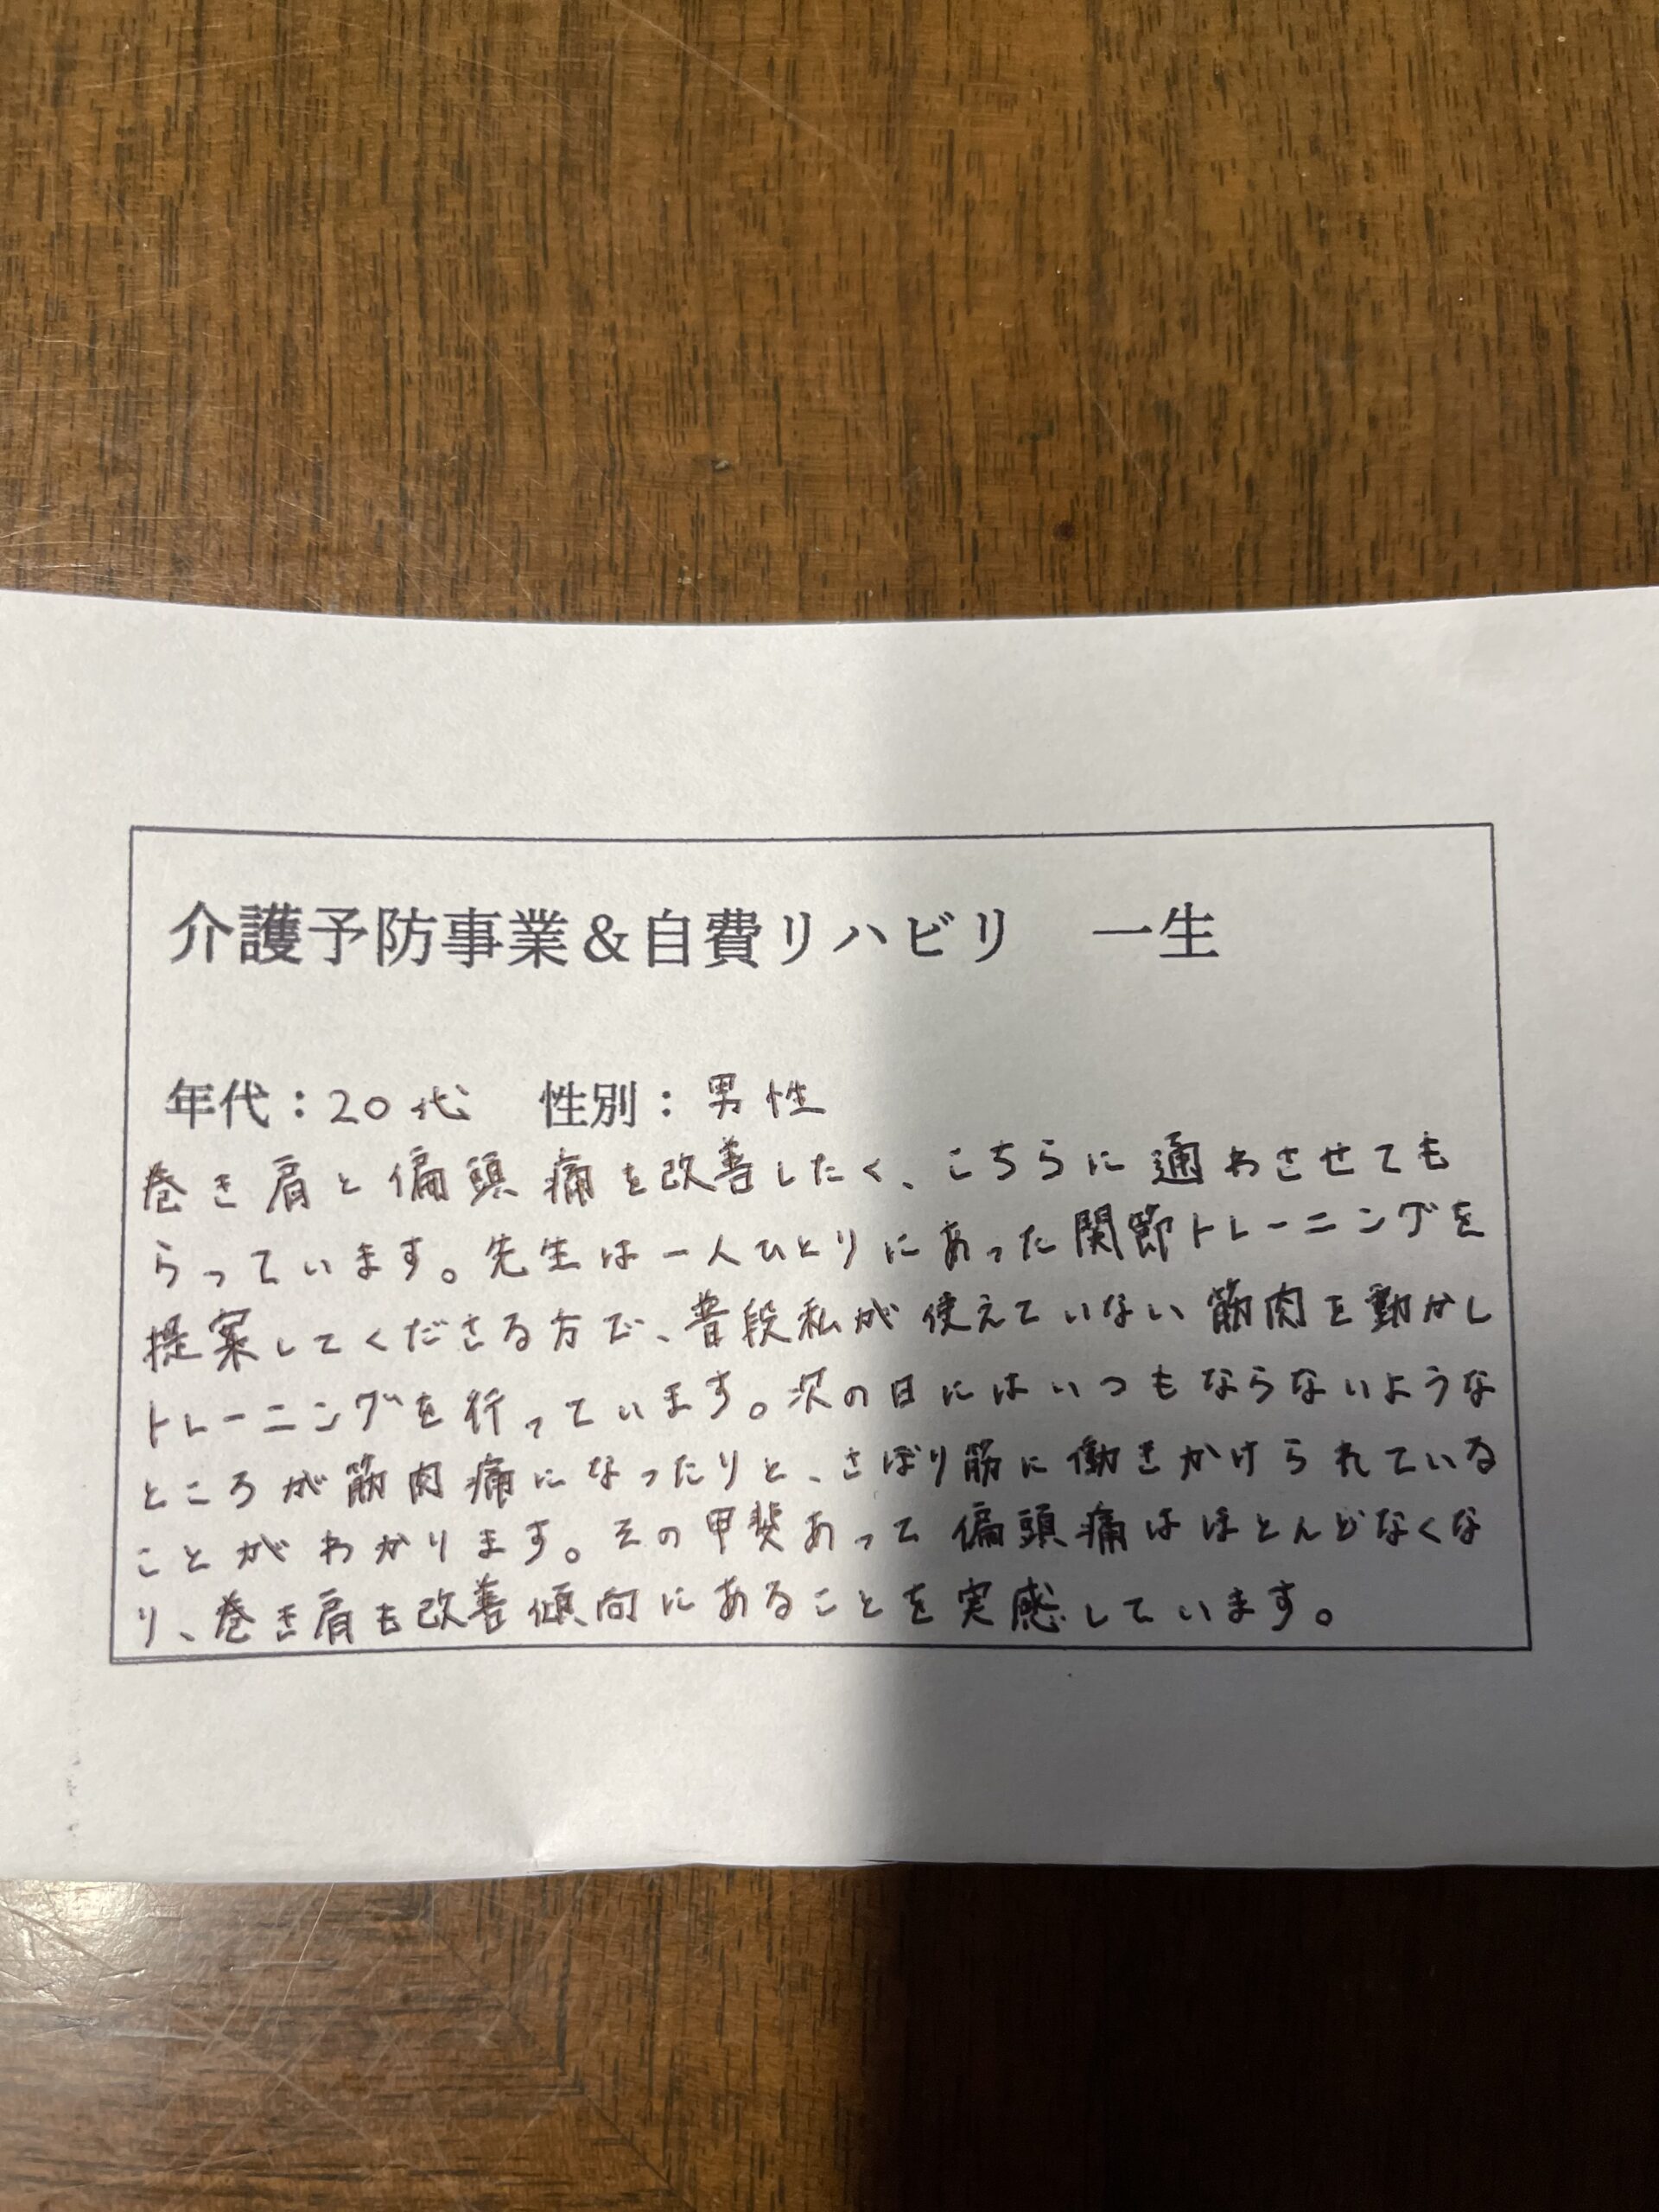 介護予防事業＆自費リハビリ　一生
年代：20代　性別：男性
巻き肩と偏頭痛を改善したく、こちらに通わさせても
らっています。先生は一人ひとりにあった関節トレーニングを
提案してくださる方で、普段私が使えていない筋肉を動かし
トレーニングを行っています。次の日にはいつもならないような
ところが筋肉痛になったりと、さぼり筋に働きかけられている
ことがわかります。その甲斐あって偏頭痛はほとんどなくな
り、巻き肩も改善傾向にあることを実感しています。